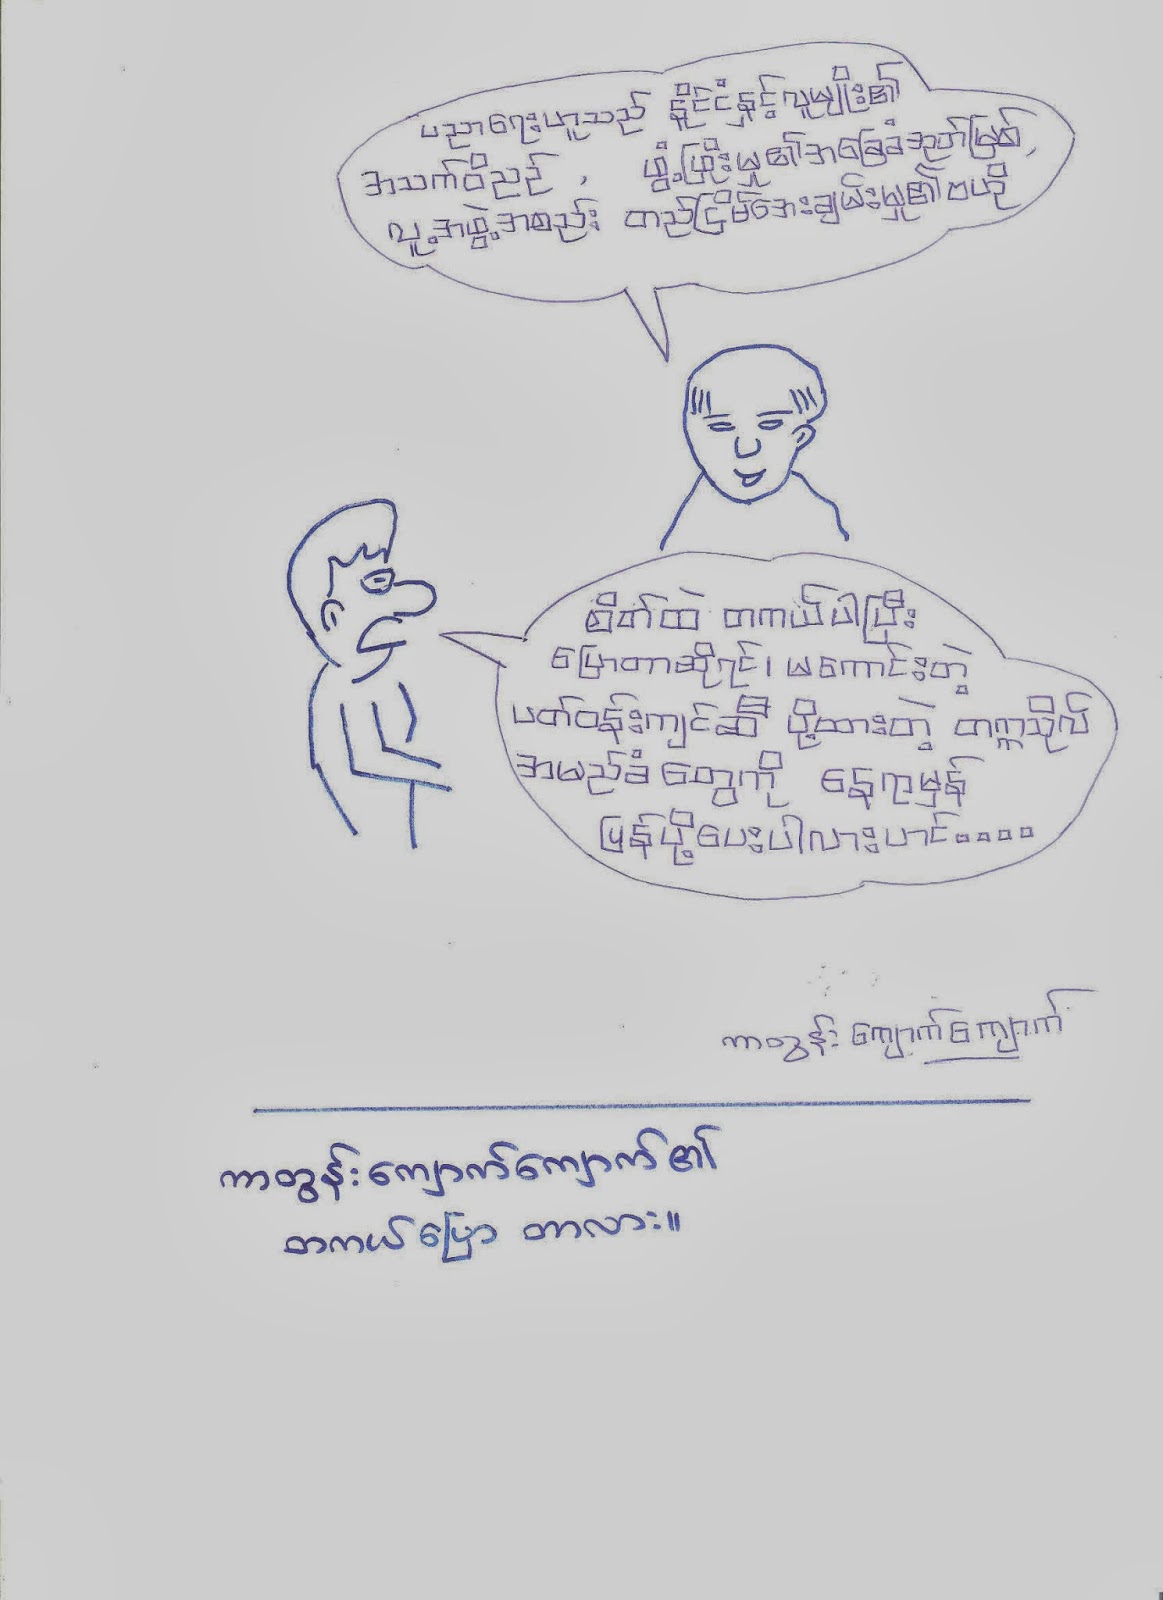 ပညာရေးဟူသည် နိုင်ငံနှင့်လူမျိုး၏
အသက်ဝိညာဉ် , ဖွံ့ဖြိုးမှု၏အခြေခံအုတ်မြစ်,
လူ့အဖွဲ့အစည်း တည်ငြိမ်အေးချမ်းမှု၏ဗဟို
စိတ်ထဲ တကယ်ပါပြီး
ပြောတာဆိုရင်၊ မကောင်းတဲ့
ပတ်ဝန်းကျင်ဆီ ပို့ထားတဲ့ တက္ကသိုလ်
အမည်ခံ တွေကို နေရာမှန်
ပြန်ပို့ပေးပါလားဟင်....
ကာတွန်း ကျောက်ကျောက်
ကာတွန်းကျောက်ကျောက်၏
တကယ်ပြော တာလား။